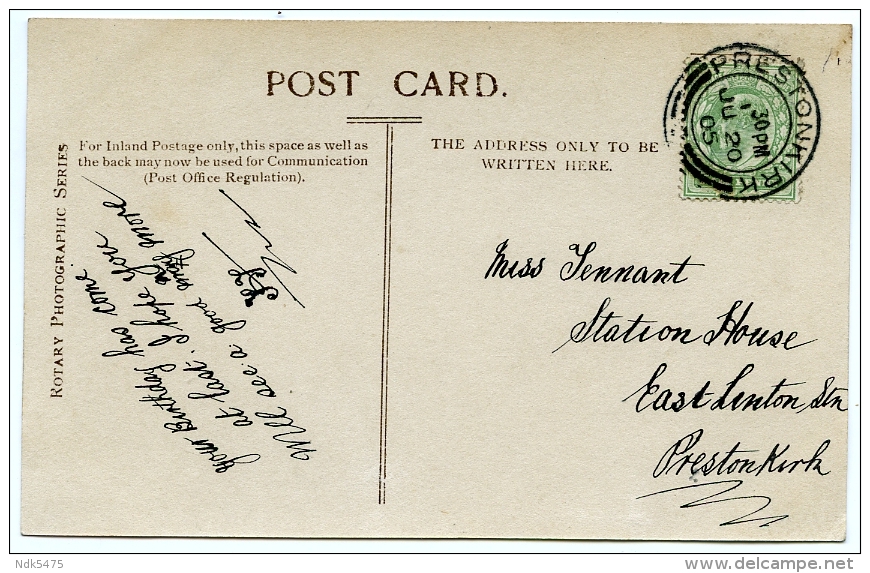 POST CARD.
For Inland Postage only, this space as well as
the back may now be used for Communication
(Post Office Regulation).
THE ADDRESS ONLY TO BE
WRITTEN HERE.
ROTARY PHOTOGRAPHIC SERIES
PRESTONKIRK
1 30PM
JU 20
05
your Birthday has come
at last. I hope you
will see a good many more
Miss Tennant
Station House
East Linton Stn
PrestonKirk
Ndk5475
delcampe.net